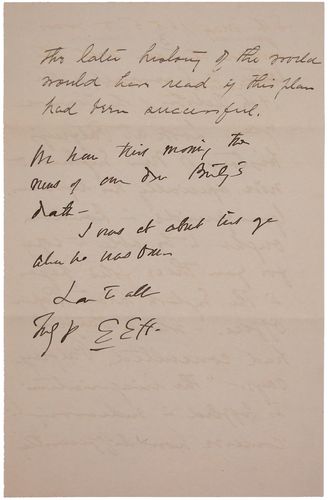 The later history of the world
would have read if this plan
had been successful.
We have this morning the
news of our dear
death -
I was at about his age
when he was born.
Love to all
E.E.H.